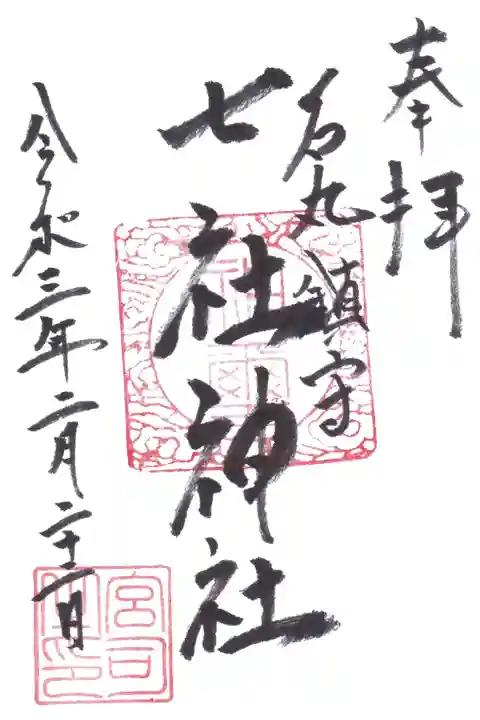 奉拝
丸鎮守
七社神社
令和三年二月二十二日
宮司